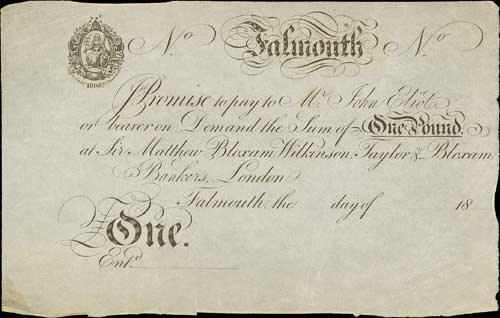 No Falmouth No
1808
I Promise to pay to Mr. John Eliot
or bearer on Demand the Sum of One Pound.
at Sir Matthew Bloxam, Wilkinson, Taylor & Bloxam
Bankers, London
Falmouth the day of 18
One.
Entd.